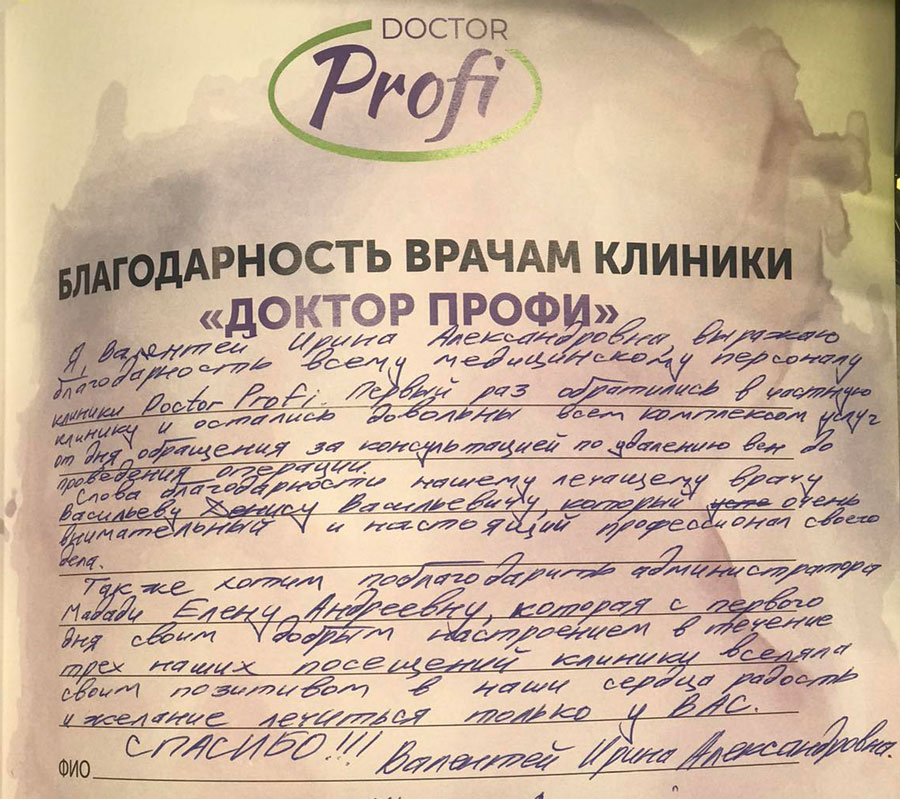 DOCTOR
Profi
БЛАГОДАРНОСТЬ ВРАЧАМ КЛИНИКИ
«ДОКТОР ПРОФИ»
Я, Валентей Ирина Александровна, выражаю
благодарность всему медицинскому персоналу
клиники Doctor Profi. Первый раз обратились в частную
клинику и остались довольны всем комплексом услуг
от дня обращения за консультацией по удалению вен до
проведения операции.
Слова благодарности нашему лечащему врачу
Васильеву Денису Васильевичу, который очень
внимательный и настоящий профессионал своего
дела.
Также хотим поблагодарить администратора
Елену Андреевну, которая с первого
дня своим добрым настроением в течение
трех наших посещений клинику вселяла
своим позитивом в наши сердца радость
и желание лечиться только у ВАС.
СПАСИБО!!! Валентей Ирина Александровна.
ФИО